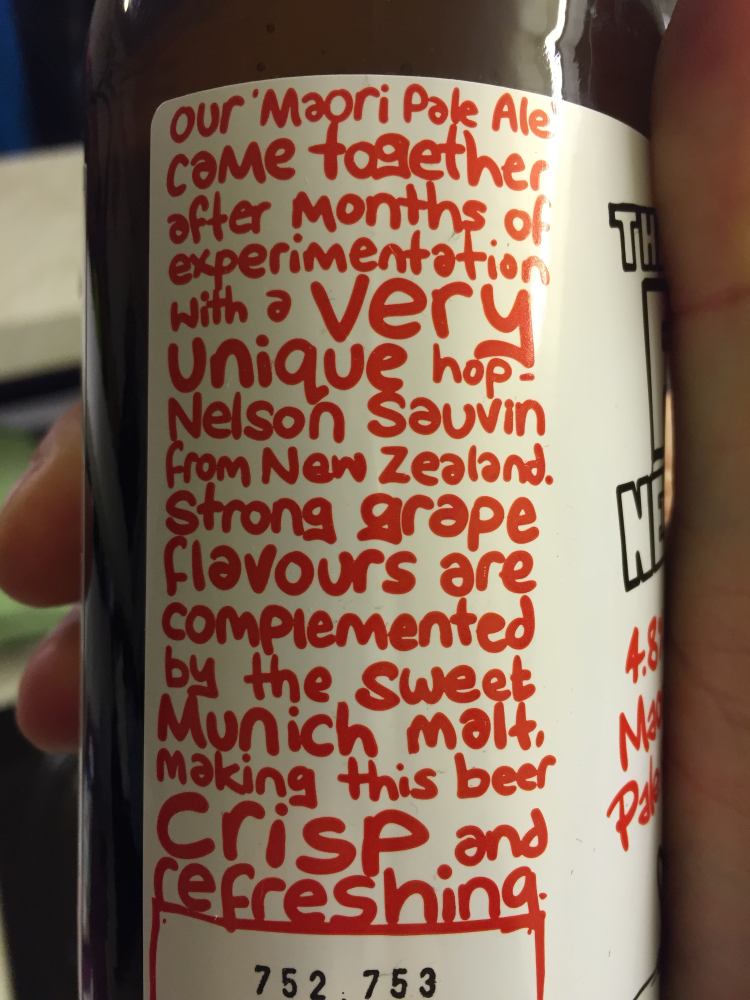 our 'Maori Pale Ale'
came together
after months of
experimentation
with a very
unique hop-
Nelson Sauvin
from New Zealand.
Strong grape
flavours are
complemented
by the sweet
Munich malt,
making this beer
crisp and
refreshing.
752 753
TH
NE
4.8
Pale